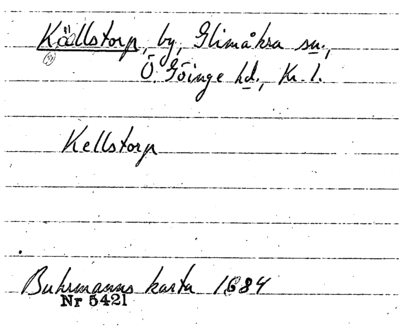 Källstorp, by, Glimåkra sn.,
Ö. Göinge hd., Kr. l.
Kellstorp
Buhrmanns karta 1684
Nr 5421